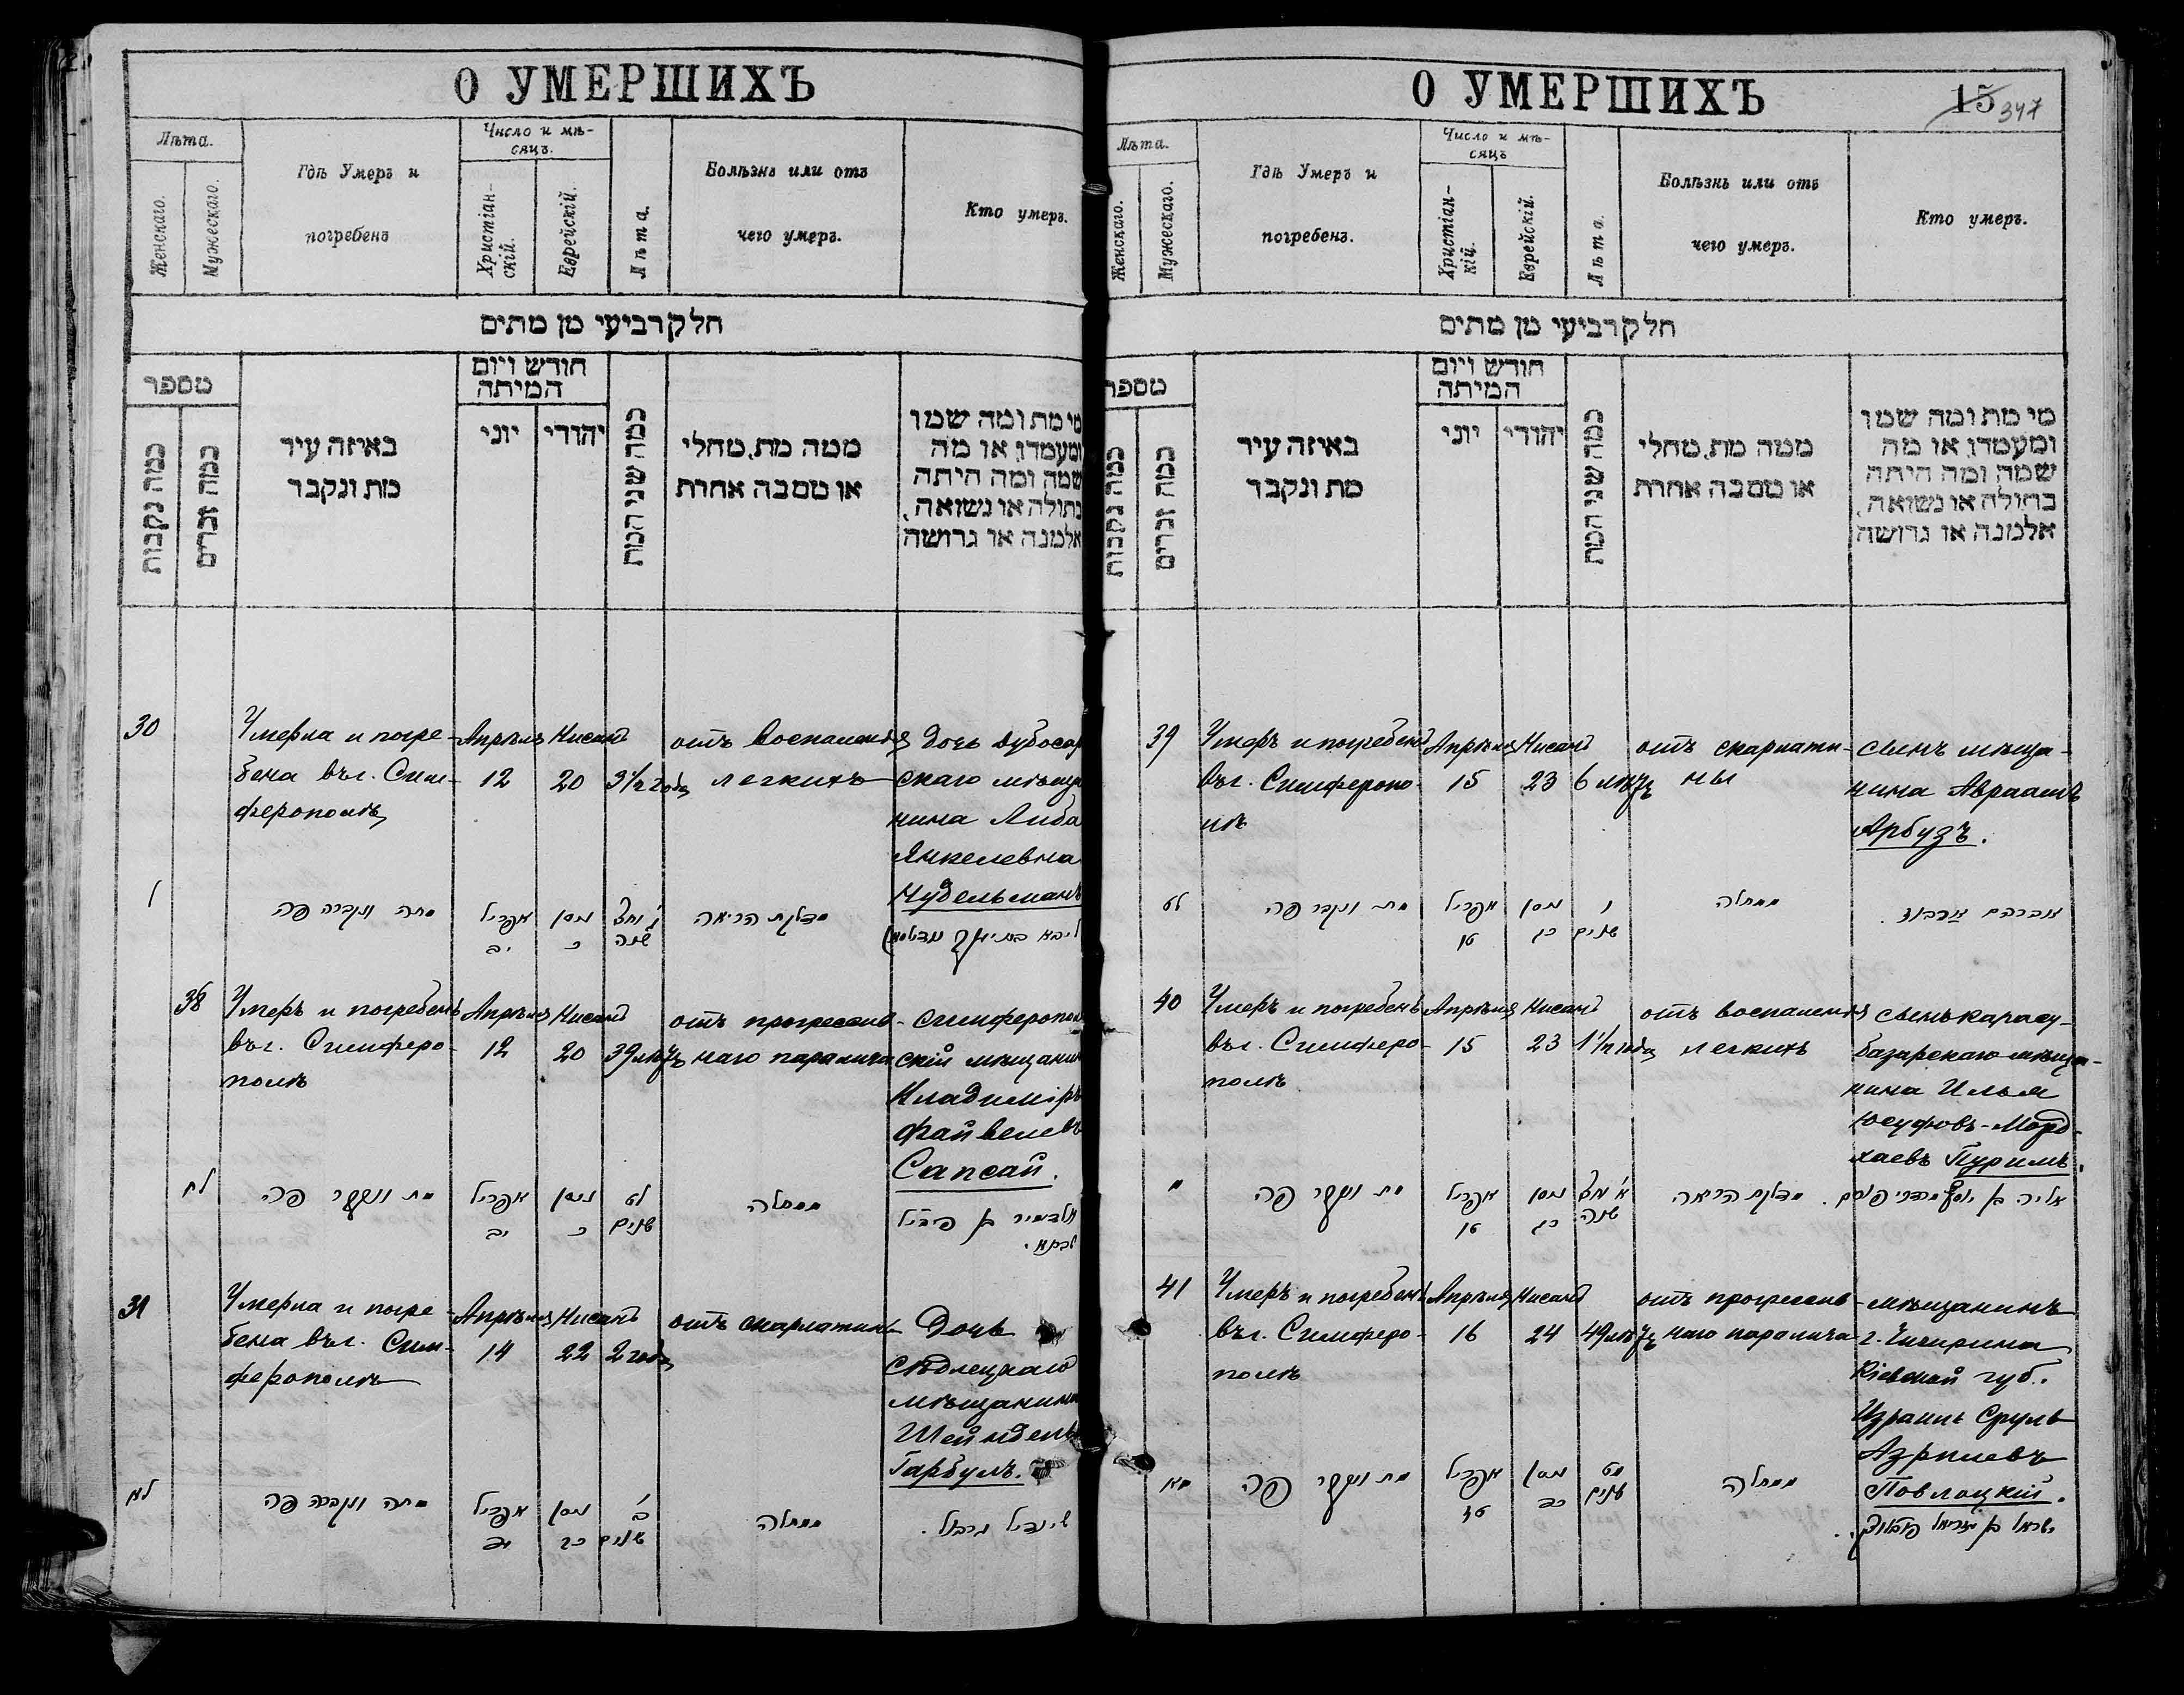 О УМЕРШИХЪ
Лѣта.
Женскаго.
Мужескаго.
Гдѣ Умеръ и
погребенъ
Число и мѣ-
сяцъ.
Христіан-
скій.
Еврейскій.
Лѣта.
Болѣзнь или отъ
чего умеръ.
Кто умеръ.
חלק רביעי מן מתים
מספר
כמה נקבות
כמה זכרים
באיזה עיר
מת ונקבר
חודש ויום
המיתה
יוני
יהודי
כמה שני המת
ממה מת, מחלי
או מסבה אחרת
מי מת ומה שמו
ומעמדו, או מה
שמה ומה היתה
בתולה או נשואה,
אלמנה או גרושה
30
Умерла и погре-
бена въ г. Сим-
ферополѣ
Апрѣля
12
Нисанъ
20
3 1/2 года
отъ воспаленія
легкихъ
Дочь дубосар
скаго мѣща
нина Либа
Янкелевна
Нудельманъ
ל
מתה ונקברה פה
אפריל
יב
ניסן
כ
ג' וחצי
שנה
מדלקת הריאה
38
Умеръ и погребенъ
въ г. Симферо-
полѣ
Апрѣля
12
Нисанъ
20
39 лѣтъ
отъ прогрессив-
наго паралича
симферополь
скій мѣщанинъ
Владиміръ
Файвелевъ
Сапсай.
לח
מת ונקבר פה
אפריל
יב
ניסן
כ
לט
שנים
ממחלה
31
Умерла и погре-
бена въ г. Сим-
ферополѣ
Апрѣля
14
Нисанъ
22
2 года
отъ скарлатины
Дочь
сѣдлецкаго
мѣщанина
Шейндель
Гарбуль.
לא
מתה ונקברה פה
אפריל
יד
ניסן
כב
ב'
שנים
ממחלה
שינדיל גרבול.
О УМЕРШИХЪ
15 347
Лѣта.
Женскаго.
Мужескаго.
Гдѣ Умеръ и
погребенъ.
Число и мѣ-
сяцъ
Христіан-
кій.
Еврейскій.
Лѣта.
Болѣзнь или отъ
чего умеръ.
Кто умеръ.
חלק רביעי מן מתים
מספר
כמה נקבות
כמה זכרים
באיזה עיר
מת ונקבר
חודש ויום
המיתה
יוני
יהודי
כמה שני המת
ממה מת, מחלי
או מסבה אחרת
מי מת ומה שמו
ומעמדו, או מה
שמה ומה היתה
בתולה או נשואה,
אלמנה או גרושה
39
Умеръ и погребенъ
въ г. Симферопо-
лѣ
Апрѣля
15
Нисанъ
23
6 лѣтъ
отъ скарлати-
ны
сынъ мѣща-
нина Авраамъ
Арбузъ.
לט
מת ונקבר פה
אפריל
טו
ניסן
כג
ו
שנים
ממחלה
אברהם ארבוז.
40
Умеръ и погребенъ
въ г. Симферо-
полѣ
Апрѣля
15
Нисанъ
23
1 1/2 года
отъ воспаленія
легкихъ
сынъ карасу-
базарскаго мѣща-
нина Илья
Юсуфовъ-Морд-
хаевъ Пуримъ.
מ
מת ונקבר פה
אפריל
טו
ניסן
כג
א' וחצי
שנה
מדלקת הריאה.
אליה בן יוסף מרדכי פורים
41
Умеръ и погребенъ
въ г. Симферо-
полѣ
Апрѣля
16
Нисанъ
24
49 лѣтъ
отъ прогрессив-
наго паралича
мѣщанинъ
г. Чигирина
Кіевской губ.
Израиль Сруль
Азрилевъ
Повлоцкій.
מא
מת ונקבר פה
אפריל
טז
ניסן
כד
מט
שנים
ממחלה
ישראל בן עזריאל